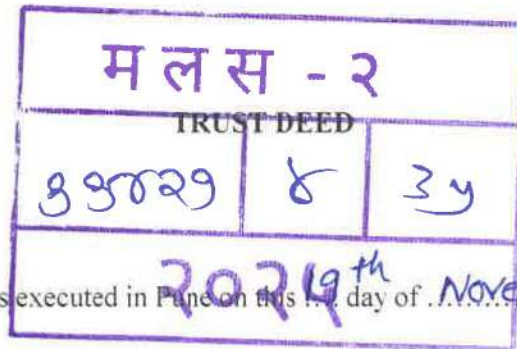 मलस - २
TRUST DEED
४ ३५
२०२५
executed in Pune on this 19th day of ..........